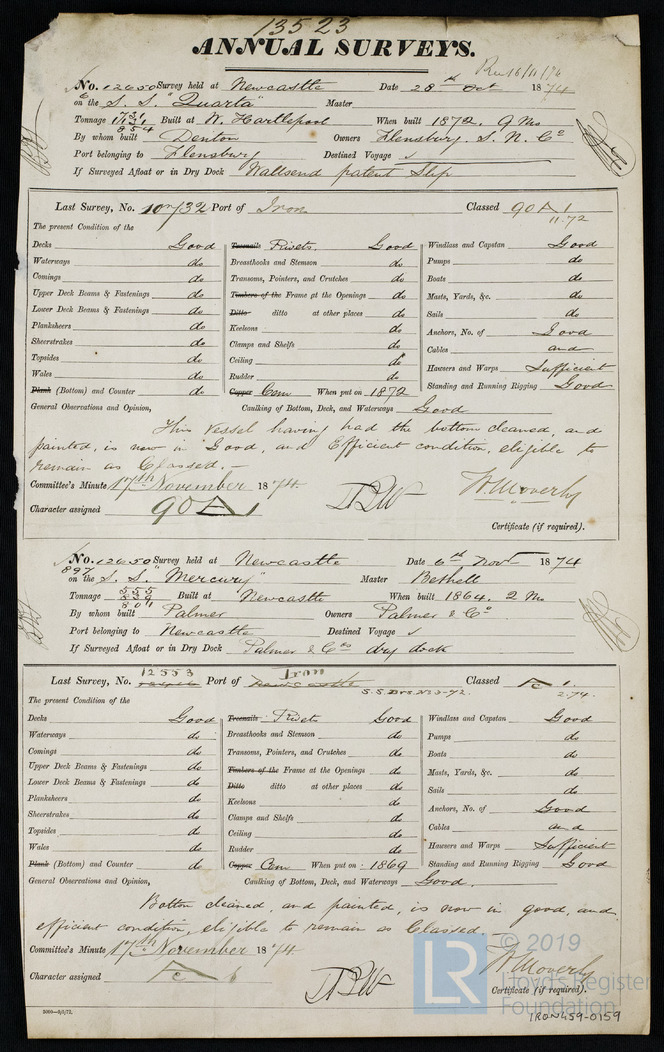 13523
ANNUAL SURVEYS.
Rec 16/11/74
No. 12650 Survey held at Newcastle Date 28th Oct 1874
on the S.S. "Quarta" Master
Tonnage 1131 854 Built at W. Hartlepool When built 1872. 9 Mo
By whom built Denton Owners Flensburg. S. N. Co
Port belonging to Flensburg Destined Voyage
If Surveyed Afloat or in Dry Dock Wallsend patent Slip
Last Survey, No. 10732 Port of Iron Classed 90 A 1
11.72
The present Condition of the
Decks Good Treenails Rivets. Good Windlass and Capstan Good
Waterways do Breasthooks and Stemson do Pumps do
Comings do Transoms, Pointers, and Crutches do Boats do
Upper Deck Beams & Fastenings do Timbers of the Frame at the Openings do Masts, Yards, &c. do
Lower Deck Beams & Fastenings do Ditto ditto at other places do Sails do
Planksheers do Keelsons do Anchors, No. of Good
Sheerstrakes do Clamps and Shelfs do Cables and
Topsides do Ceiling do Hawsers and Warps Sufficient
Wales do Rudder do Standing and Running Rigging Good
Plank (Bottom) and Counter do Copper Cem When put on 1872
General Observations and Opinion, Caulking of Bottom, Deck, and Waterways Good
This vessel having had the bottom cleaned, and
painted, is now in Good, and Efficient condition, eligible to
remain as Classed.
Committee's Minute 17th November 1874.
Character assigned 90 A 1
W. Moverly
Certificate (if required).
No. 12650 Survey held at Newcastle Date 6th Novr 1874
897
on the S.S. "Mercury" Master Bethell
Tonnage 555 839 801 Built at Newcastle When built 1864. 2 Mo
By whom built Palmer Owners Palmer & Co
Port belonging to Newcastle Destined Voyage
If Surveyed Afloat or in Dry Dock Palmer & Co's dry dock
Last Survey, No. 12553 Port of Iron Newcastle Classed A 1
S.S. Drs. No 3-72. 2.74.
The present Condition of the
Decks Good Treenails Rivets Good Windlass and Capstan Good
Waterways do Breasthooks and Stemson do Pumps do
Comings do Transoms, Pointers, and Crutches do Boats do
Upper Deck Beams & Fastenings do Timbers of the Frame at the Openings do Masts, Yards, &c. do
Lower Deck Beams & Fastenings do Ditto ditto at other places do Sails do
Planksheers do Keelsons do Anchors, No. of Good
Sheerstrakes do Clamps and Shelfs do Cables and
Topsides do Ceiling do Hawsers and Warps Sufficient
Wales do Rudder do Standing and Running Rigging Good
Plank (Bottom) and Counter do Copper Cem When put on 1869
General Observations and Opinion, Caulking of Bottom, Deck, and Waterways Good.
Botton cleaned, and painted, is now in good, and
efficient condition, eligible to remain as Classed.
Committee's Minute 17th November 1874
Character assigned
W. Moverly
Certificate (if required).
5000—3/5/72.
LR © 2019
Lloyd's Register
Foundation
IRON459-0159